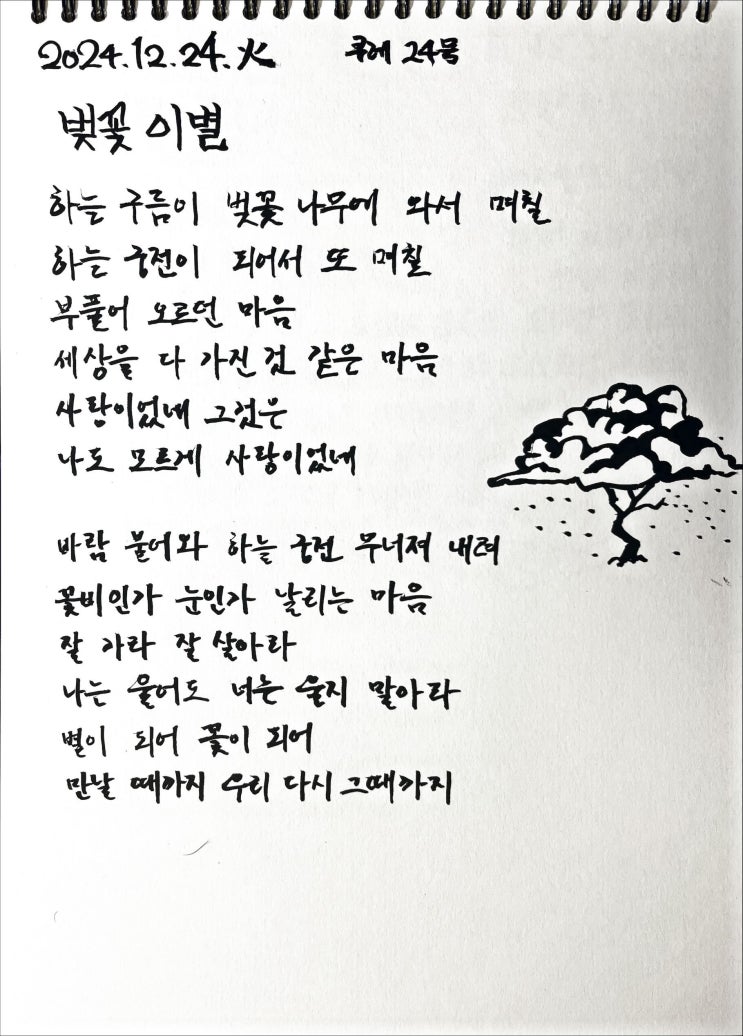 2024.12.24.火 쿠레 24목
벚꽃 이별
하늘 구름이 벚꽃 나무에 와서 며칠
하늘 궁전이 되어서 또 며칠
부풀어 오르던 마음
세상을 다 가진 것 같은 마음
사랑이었네 그것은
나도 모르게 사랑이었네
바람 불어와 하늘 궁전 무너져 내려
꽃비인가 눈인가 날리는 마음
잘 가라 잘 살아라
나는 울어도 너는 울지 말아라
별이 되어 꽃이 되어
만날 때까지 우리 다시 그때까지